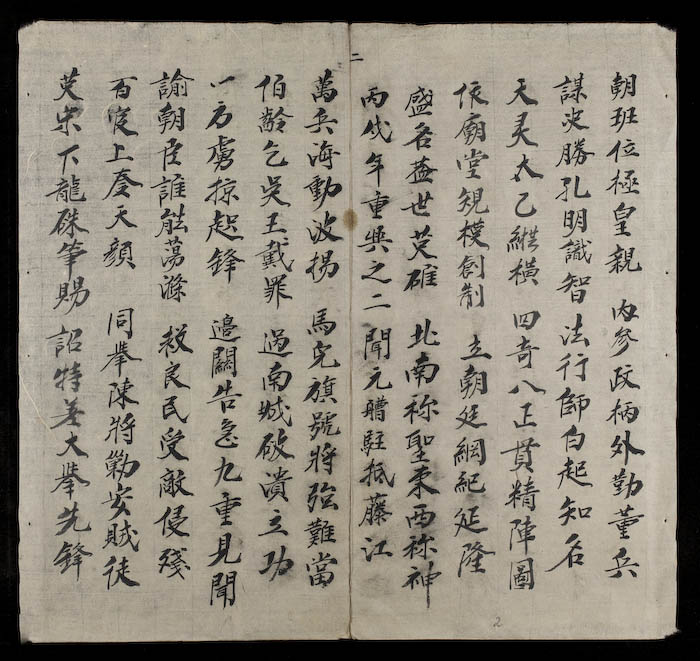 二
朝班位極皇親 內參政柄外勤董兵
謀决勝孔明識智 法行師白起知名
天灵太乙縱橫 四奇八正貫精陣圖
依廟堂規模創制 立朝廷綱紀延隆
盛名蓋世英雄 北南祢聖東西祢神
丙戌年重興之二 聞元艚駐抵藤江
萬兵海動波揚 馬兒旗號將強難當
伯齡乞吳王戴罪 過南城破潰立功
一方虜掠起鋒 邊關告急九重見聞
諭朝臣誰能蕩滌 救良民受敵侵殘
百官上奏天顏 同舉陳將勦安賊徒
英宗下龍硃筆賜 詔特差大舉先鋒
2